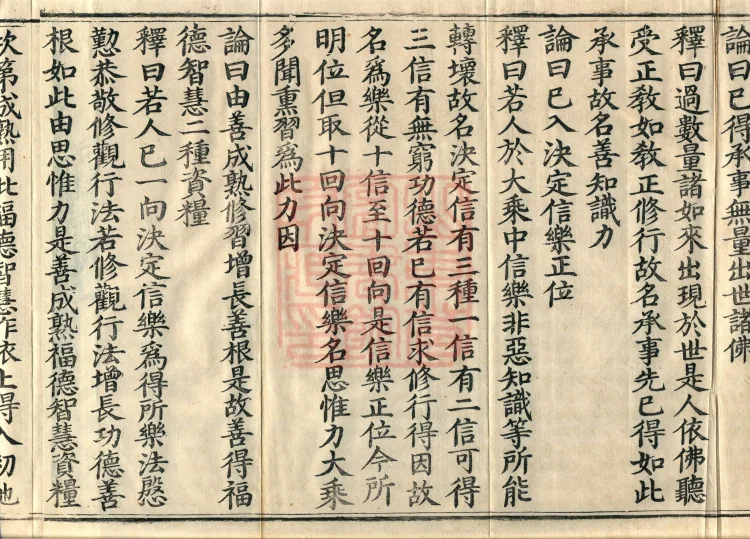 論曰已得承事無量出世諸佛
釋曰過數量諸如來出現於世是人依佛聽
受正教如教正修行故名承事先已得如此
承事故名善知識力
論曰已入決定信樂正位
釋曰若人於大乘中信樂非惡知識等所能
轉壞故名決定信有三種一信有二信可得
三信有無窮功德若已有信求修行得因故
名爲樂從十信至十回向是信樂正位今所
明位但取十回向決定信樂名思惟力大乘
多聞熏習爲此力因
論曰由善成熟修習增長善根是故善得福
德智慧二種資糧
釋曰若人已一向決定信樂爲得所樂法慇
懃恭敬修觀行法若修觀行法增長功德善
根如此由思惟力是善成熟福德智慧資糧
次第成熟用此福德智慧作依止得入初地